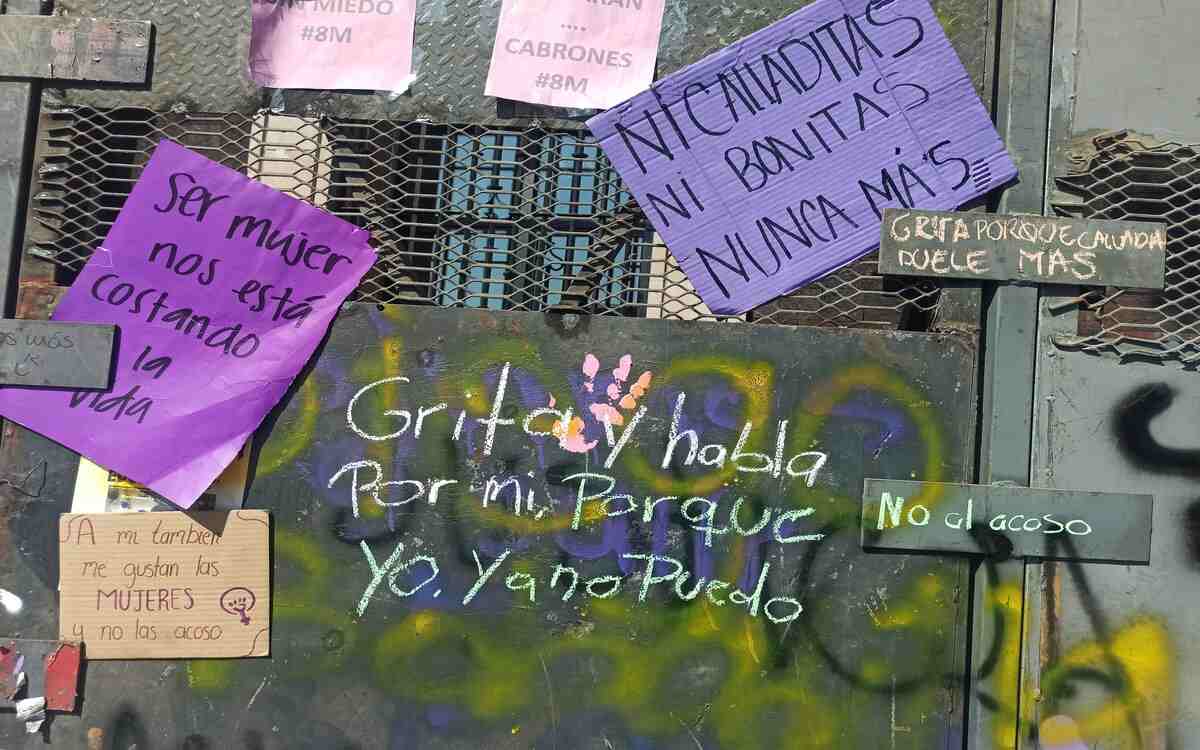 MIEDO
#8M
....
CABRONES
#8M
NI CALLADITAS
NI BONITAS
NUNCA MÁS
Ser mujer
nos está
costando
la
vida
GRITA PORQUE CALLADA
DUELE MAS
más
Grita y habla
Por mi, Porque
Yo. Ya no Puedo
No al acoso
A mi tambien
me gustan las
MUJERES
y no las acoso